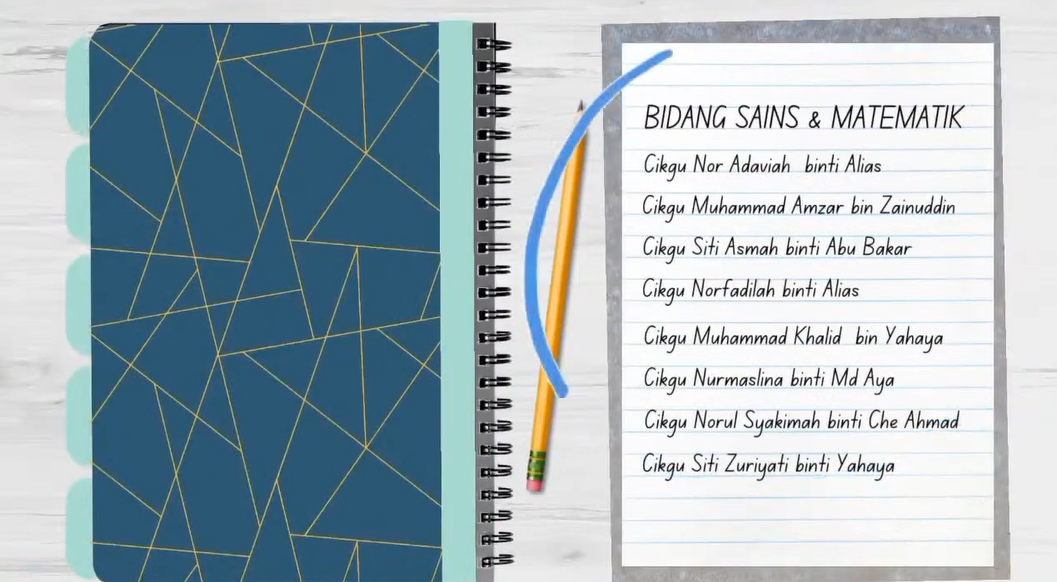 BIDANG SAINS & MATEMATIK
Cikgu Nor Adaviah binti Alias
Cikgu Muhammad Amzar bin Zainuddin
Cikgu Siti Asmah binti Abu Bakar
Cikgu Norfadilah binti Alias
Cikgu Muhammad Khalid bin Yahaya
Cikgu Nurmaslina binti Md Aya
Cikgu Norul Syakimah binti Che Ahmad
Cikgu Siti Zuriyati binti Yahaya